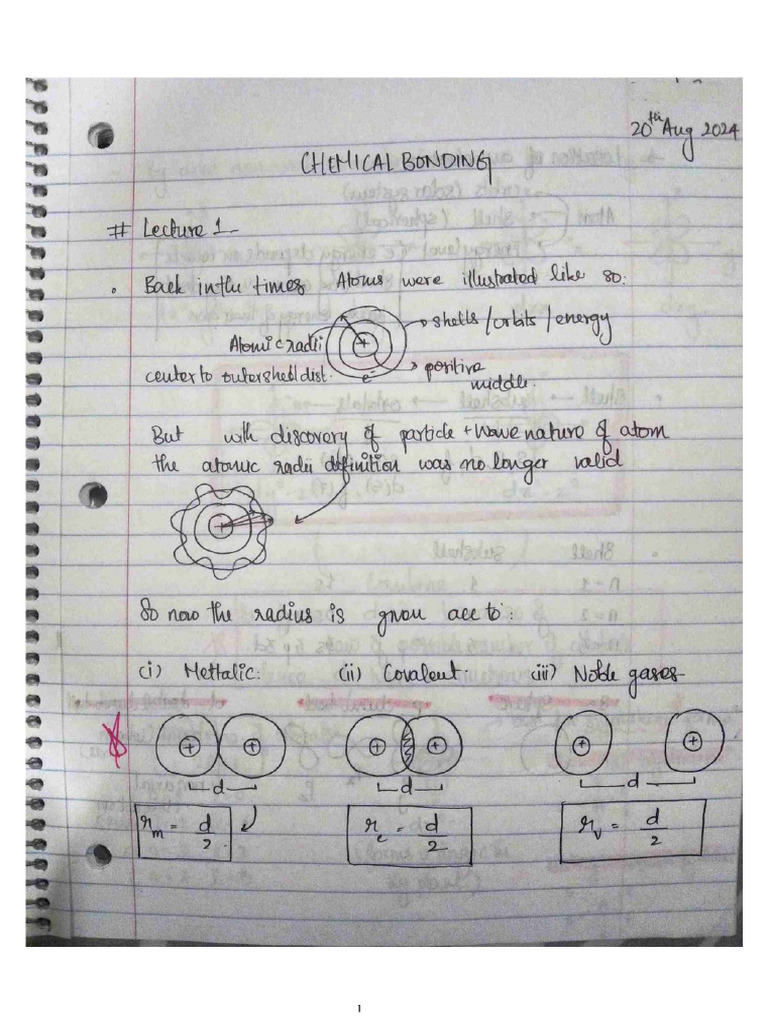 20th Aug 2024
CHEMICAL BONDING
# Lecture 1
• Back inthu times Atoms were illustrated like so:
Atomic radii
center to outershell dist.
+
e-
→ shells/orbits/energy
→ positive
middle.
But with discovery of particle + wave nature of atom
the atomic radii definition was no longer valid
+
So now the radius is given acc to:
(i) Mettalic: (ii) Covalent: (iii) Noble gases
+ + + + + +
d d d
r_m = d/2 r_c = d/2 r_v = d/2
1